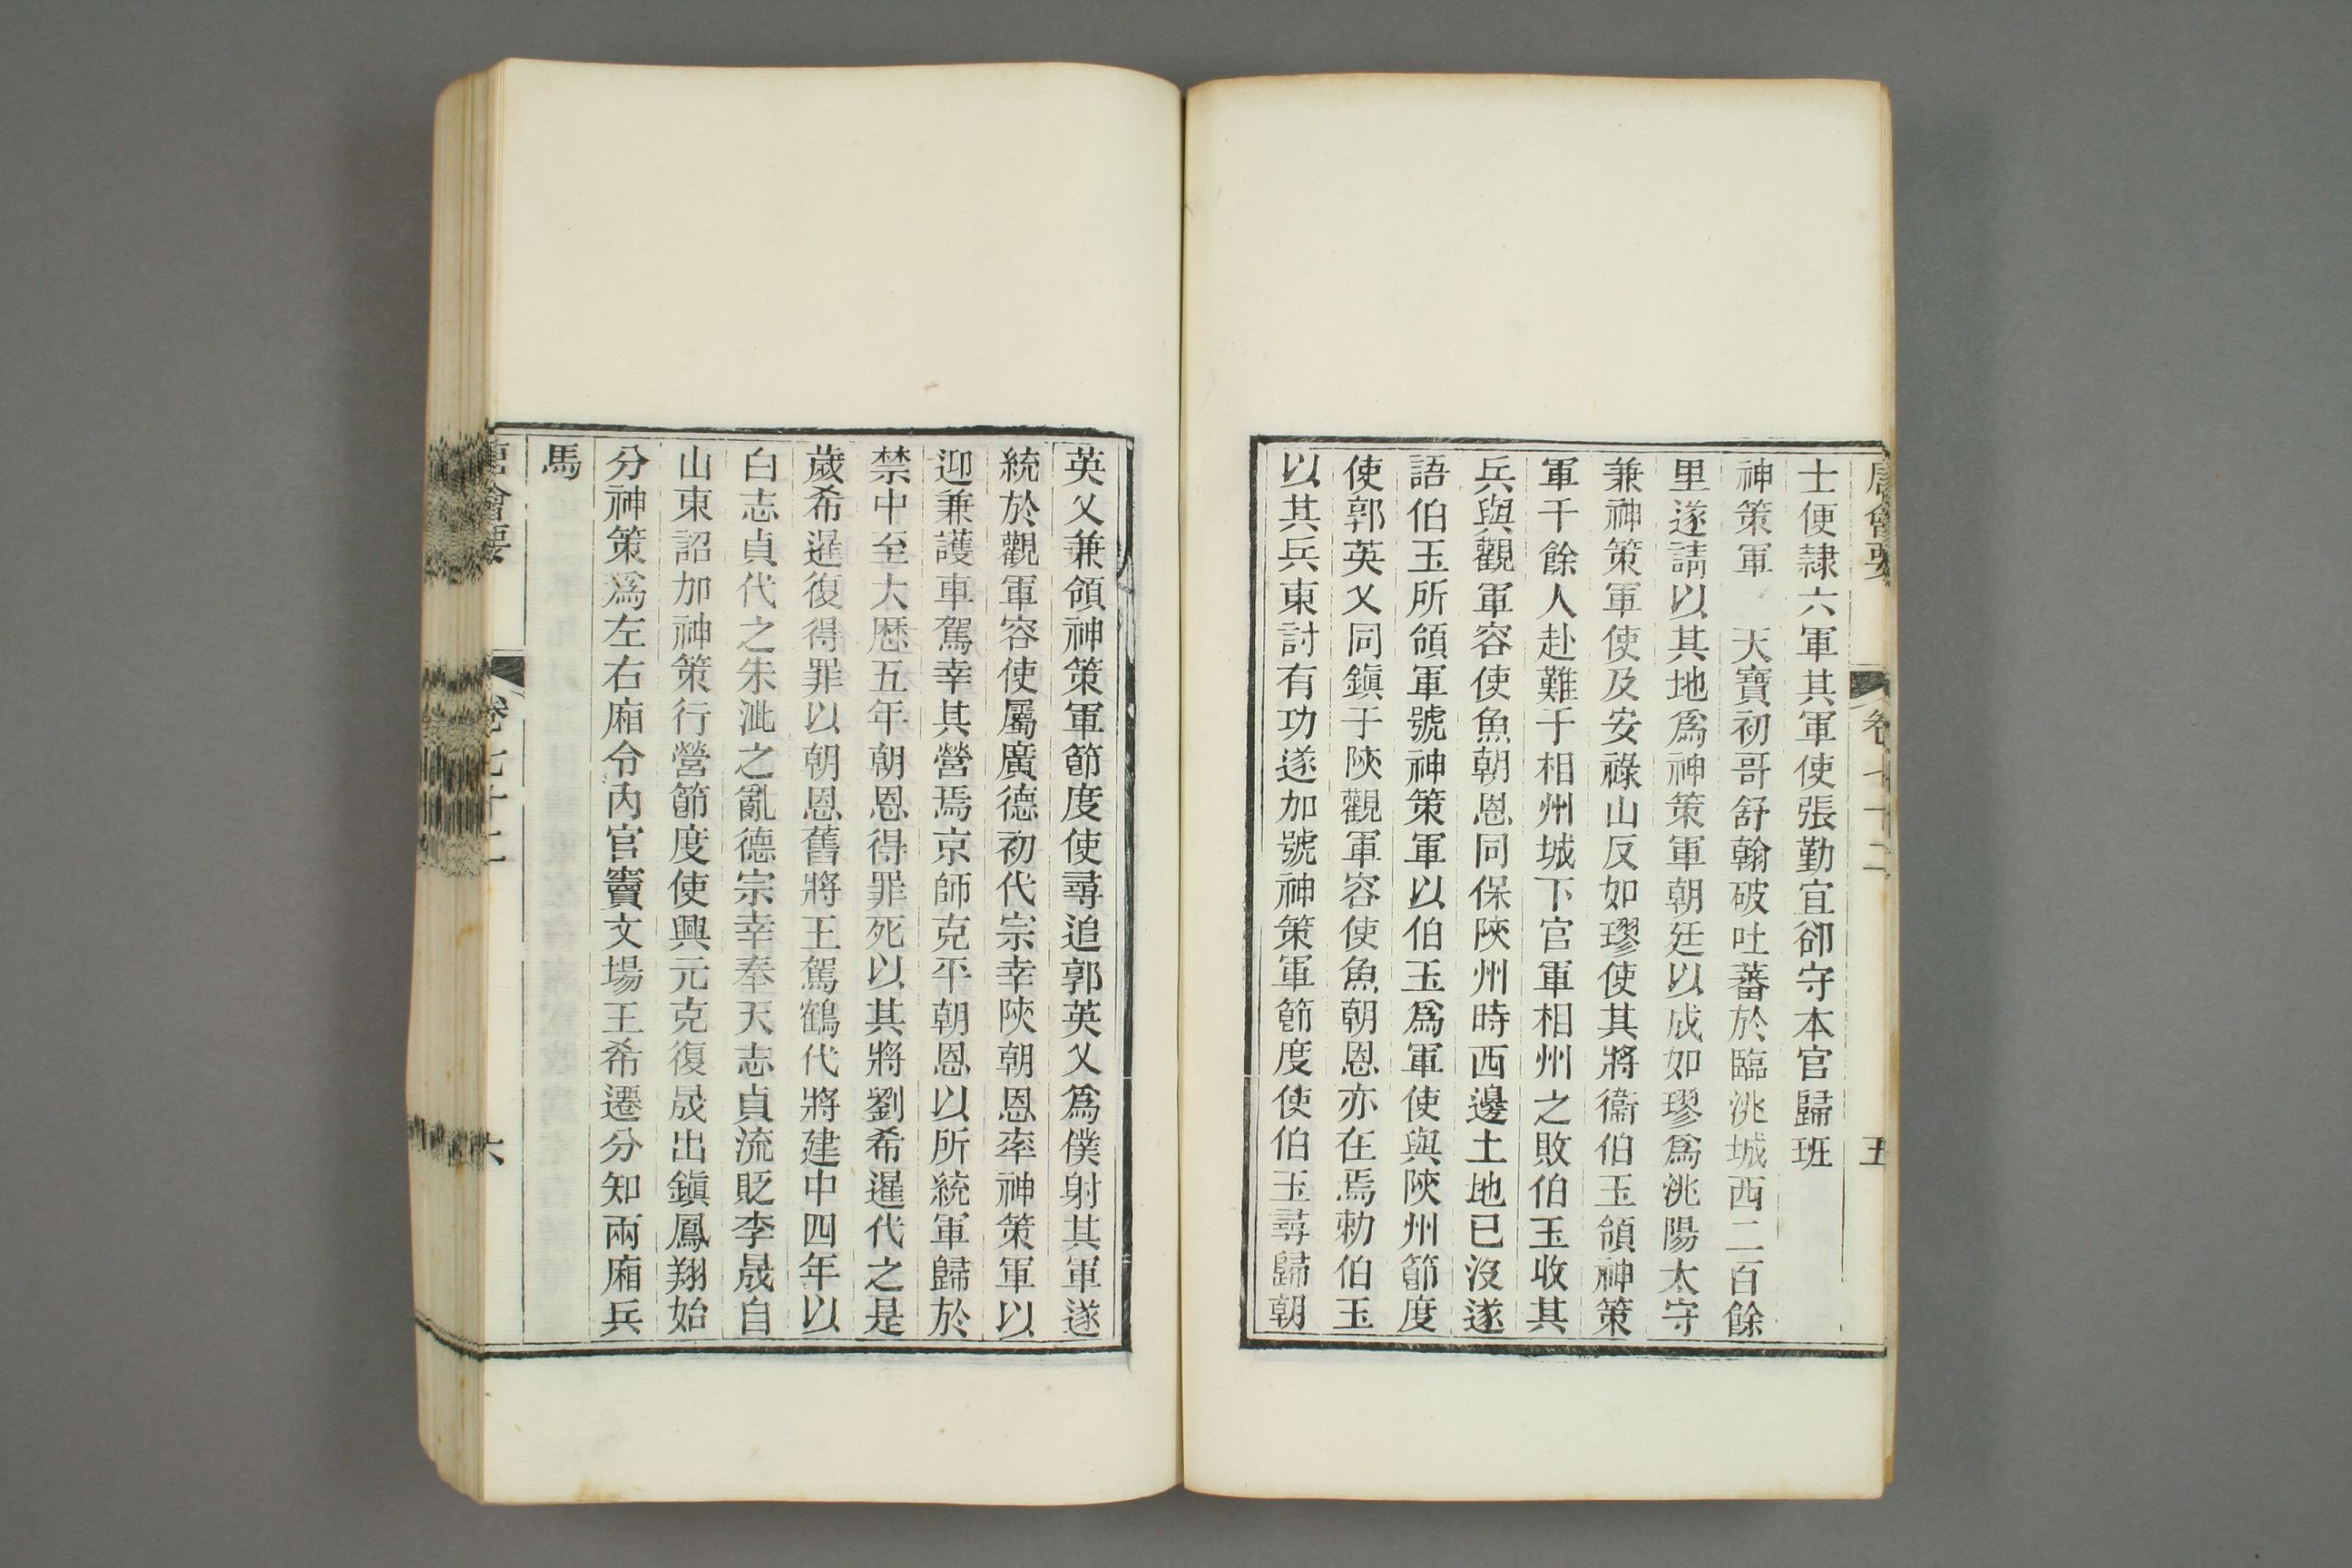 唐會要 卷七十二 五
士便隸六軍其軍使張勤宜卻守本官歸班
神策軍 天寶初哥舒翰破吐蕃於臨洮城西二百餘
里遂請以其地爲神策軍朝廷以成如璆爲洮陽太守
兼神策軍使及安祿山反如璆使其將衞伯玉領神策
軍千餘人赴難于相州城下官軍相州之敗伯玉收其
兵與觀軍容使魚朝恩同保陝州時西邊土地已沒遂
語伯玉所領軍號神策軍以伯玉爲軍使與陝州節度
使郭英乂同鎭于陝觀軍容使魚朝恩亦在焉勅伯玉
以其兵東討有功遂加號神策軍節度使伯玉尋歸朝
英乂兼領神策軍節度使尋追郭英乂爲僕射其軍遂
統於觀軍容使屬廣德初代宗幸陝朝恩率神策軍以
迎兼護車駕幸其營焉京師克平朝恩以所統軍歸於
禁中至大歷五年朝恩得罪死以其將劉希暹代之是
歲希暹復得罪以朝恩舊將王駕鶴代將建中四年以
白志貞代之朱泚之亂德宗幸奉天志貞流貶李晟自
山東詔加神策行營節度使興元克復晟出鎭鳳翔始
分神策爲左右廂令內官竇文場王希遷分知兩廂兵
馬
唐會要 卷七十二 六